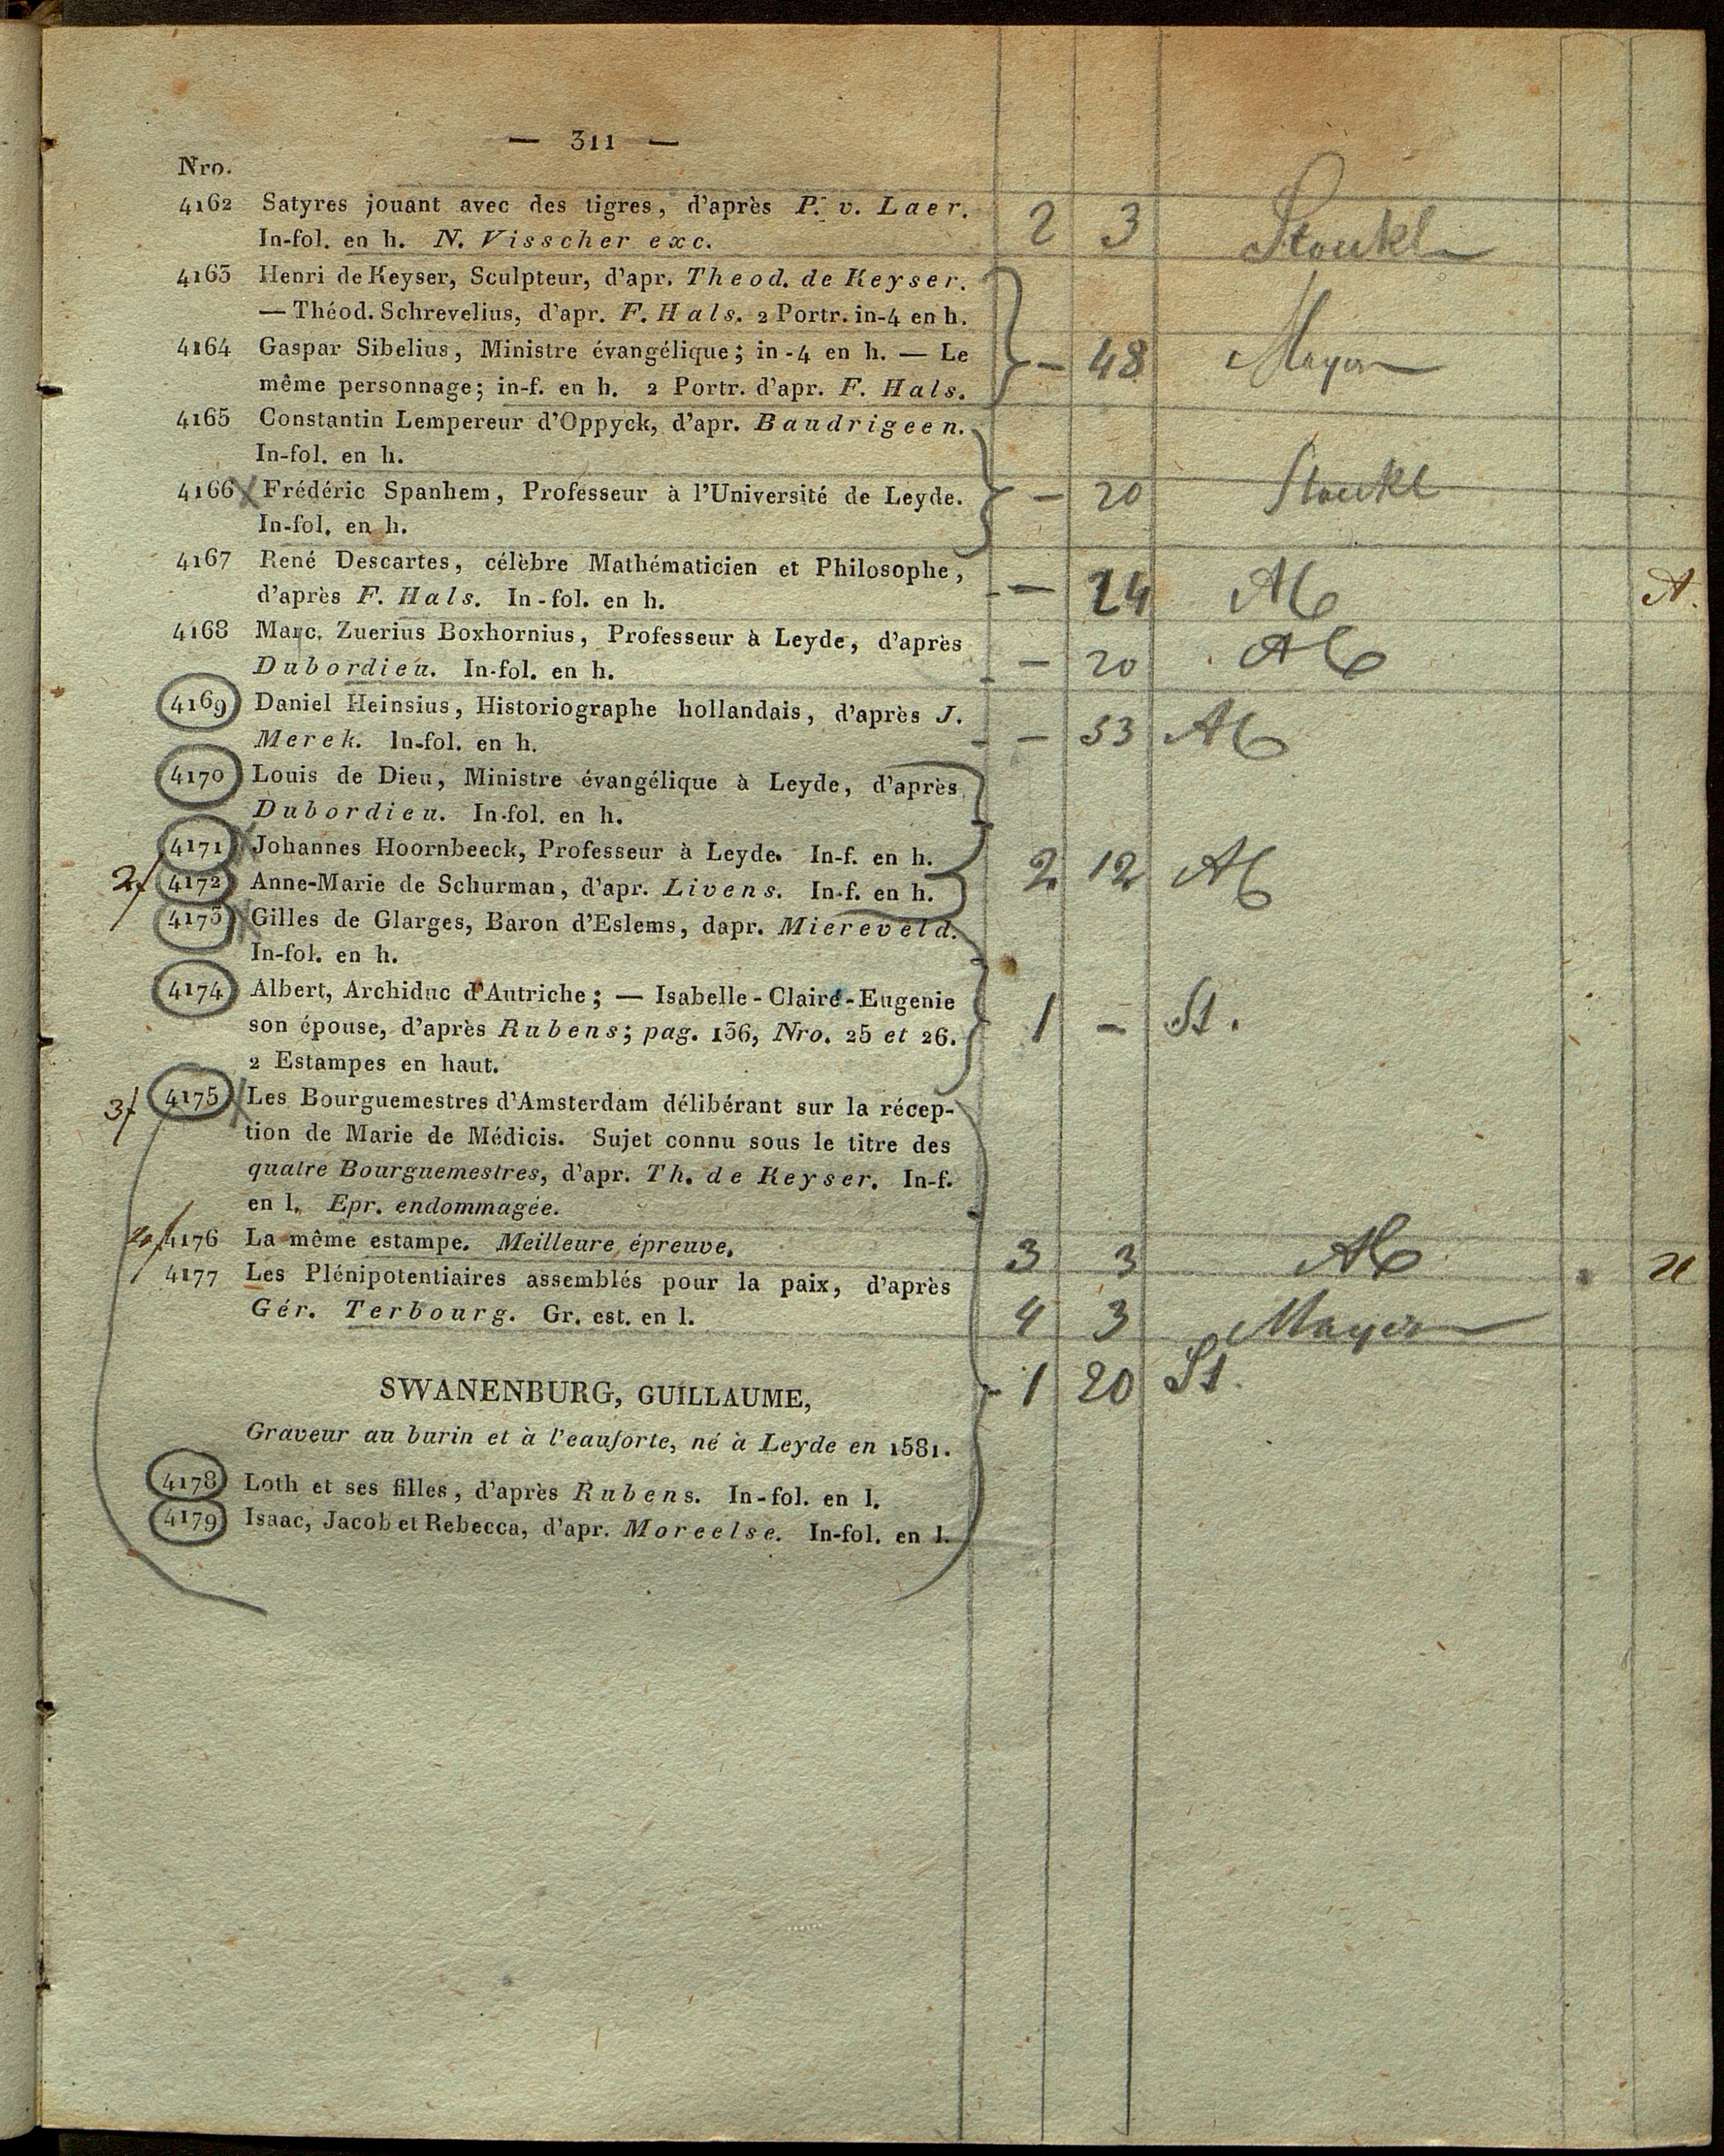 — 311 —
Nro.
4162 Satyres jouant avec des tigres, d'après P. v. Laer.
In-fol. en h. N. Visscher exc. 2 3 Stoukl
4163 Henri de Keyser, Sculpteur, d'apr. Theod. de Keyser.
— Théod. Schrevelius, d'apr. F. Hals. 2 Portr. in-4 en h.
4164 Gaspar Sibelius, Ministre évangélique; in-4 en h. — Le – 48 Mayer
même personnage; in-f. en h. 2 Portr. d'apr. F. Hals.
4165 Constantin Lempereur d'Oppyck, d'apr. Baudrigeen.
In-fol. en h.
4166 Frédéric Spanhem, Professeur à l'Université de Leyde. – 20 Stoukl
In-fol. en h.
4167 René Descartes, célèbre Mathématicien et Philosophe,
d'après F. Hals. In-fol. en h. – 24 Alb A.
4168 Marc. Zuerius Boxhornius, Professeur à Leyde, d'après
Dubordieu. In-fol. en h. – 20 Alb
4169 Daniel Heinsius, Historiographe hollandais, d'après J.
Merek. In-fol. en h. – 53 Alb
4170 Louis de Dieu, Ministre évangélique à Leyde, d'après
Dubordieu. In-fol. en h.
4171 Johannes Hoornbeeck, Professeur à Leyde. In-f. en h.
2/ 4172 Anne-Marie de Schurman, d'apr. Livens. In-f. en h. 2 12 Alb
4173 Gilles de Glarges, Baron d'Eslems, dapr. Miereveld.
In-fol. en h.
4174 Albert, Archiduc d'Autriche; — Isabelle-Claire-Eugenie
son épouse, d'après Rubens; pag. 136, Nro. 25 et 26. 1 – St.
2 Estampes en haut.
3/ 4175 Les Bourguemestres d'Amsterdam délibérant sur la récep-
tion de Marie de Médicis. Sujet connu sous le titre des
quatre Bourguemestres, d'apr. Th. de Keyser. In-f.
en l. Epr. endommagée.
4176 La même estampe. Meilleure épreuve. 3 3 Alb
4177 Les Plénipotentiaires assemblés pour la paix, d'après
Gér. Terbourg. Gr. est. en l. 4 3 Mayer
SWANENBURG, GUILLAUME, 1 20 St.
Graveur au burin et à l'eauforte, né à Leyde en 1581.
4178 Loth et ses filles, d'après Rubens. In-fol. en l.
4179 Isaac, Jacob et Rebecca, d'apr. Moreelse. In-fol. en l.